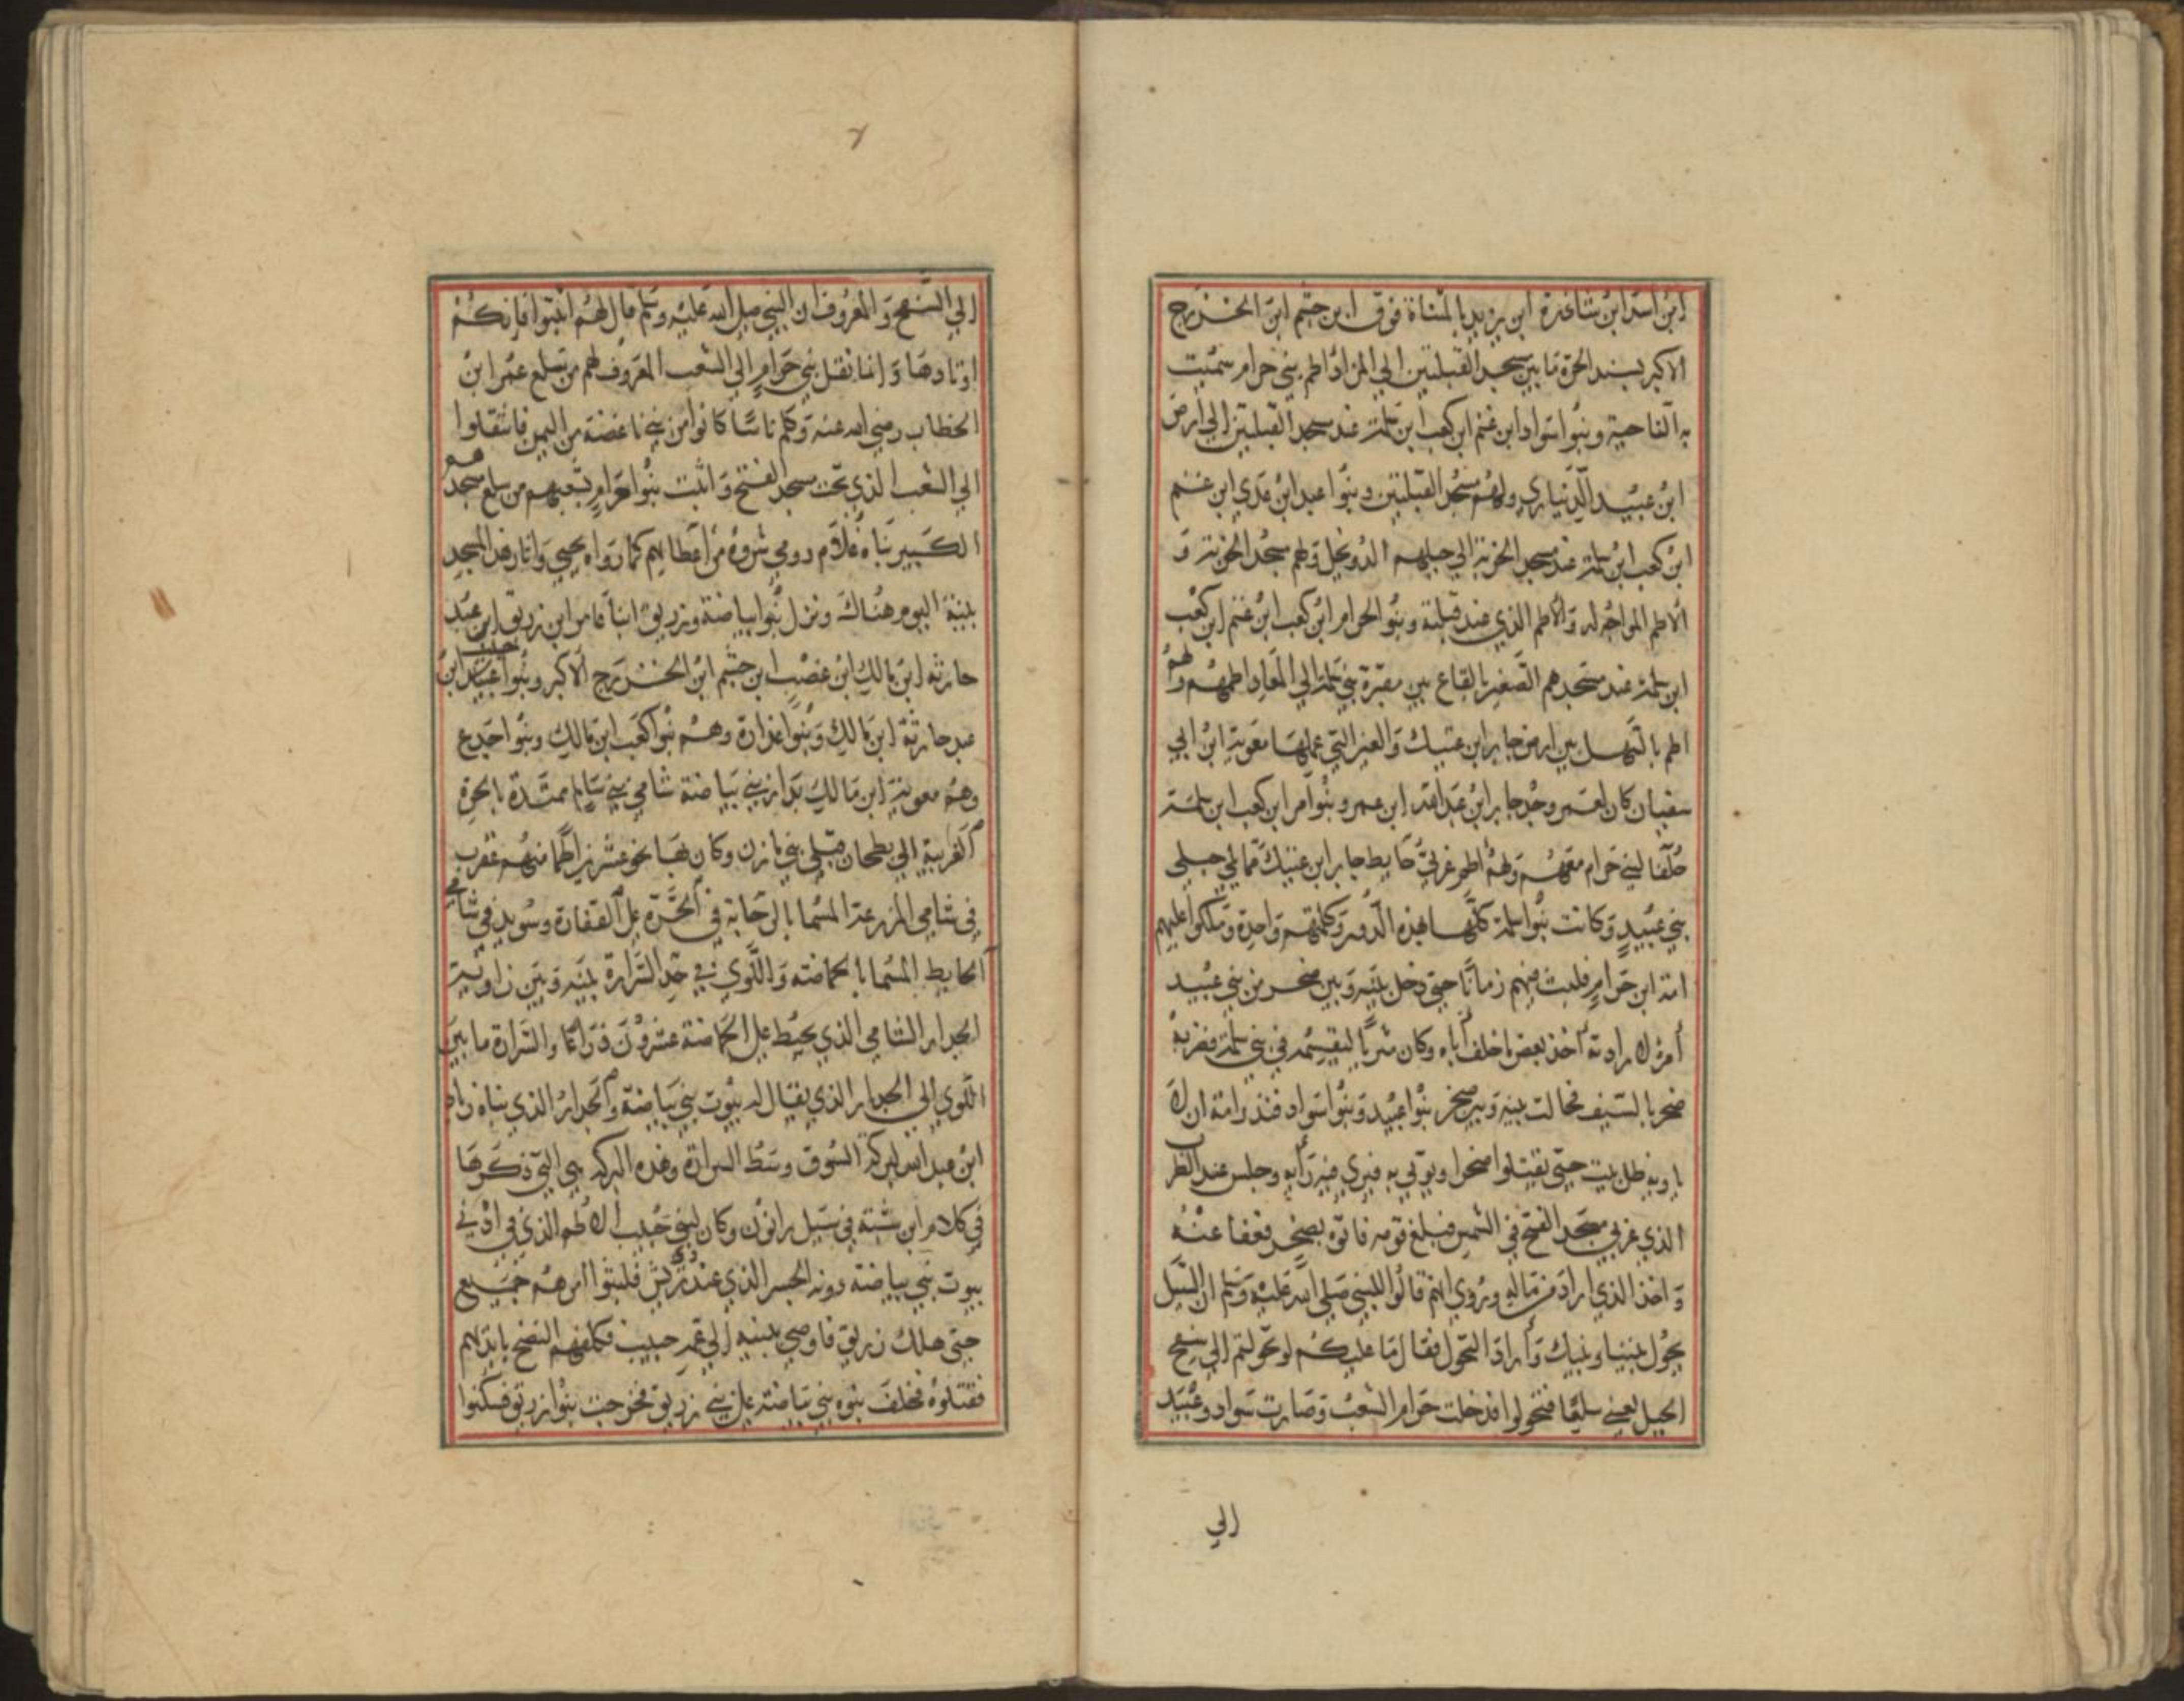 ابن اسد ابن شاغدة ابن يزيد بالمثناة فوق ابن جشم ابن الخزرج
الاكبر بسند الحرة ما بين مسجد القبلتين الي المزاد اطم بني حرام سميت
به الناحية وبنوا سواد ابن غنم ابن كعب ابن سلمة عند مسجد القبلتين الي ارض
ابن عبيد الدنياري ولهم مسجد القبلتين وبنوا عبد ابن عدي ابن غنم
ابن كعب ابن سلمة عند مسجد الخربة الي جبلهم الدويخل ولهم مسجد الخربة و
الاطم المواجه له والاطم الذي عند قبلته وبنوا الحرام ابن كعب ابن غنم ابن كعب
ابن سلمة عند مسجدهم الصغير بالقاع بين مقبرة بني سلمة الي المعاد اطمهم ولهم
اطم بالسهل بين ارض جابر ابن عتيك والعين التي عملها معوية ابن ابي
سفيان كان لعمرو جد جابر ابن عبد الله ابن عمرو وبنوا مر ابن كعب ابن سلمة
حلفا لبني حرام معهم ولهم اطم غربي حايط جابر ابن عتيك مما يلي جبلي
بني عبيد وكانت بنوا سلمة كلها هذه الدور وكلمتهم واحدة وملكوا عليهم
امة ابن حرام فلبث فيهم زمانا حتي دخل بينه وبين صخر من بني عبيد
امر لارادته اخذ بعض ما خلف اباه وكان مثريا ليقسمه في بني سلمة فضربه
صخر بالسيف فحالت بينه وبين صخر بنوا عبيد وبنوا سواد فنذر امة ان لا
ياويه ظل بيت حتي يقتلوا صخرا ويوتي به فيري فيه رأيه وجلس عند الظرب
الذي غربي مسجد الفتح في الشمس فبلغ قومه فاتوه بصخر فعفا عنه
واخذ الذي اراد من ماله وروي انهم قالوا للنبي صلي الله عليه وسلم ان السيل
يحول بيننا وبينك وأراد التحول فقال ما عليكم لو تحولتم الي سفح
الجبل يعني سلعا فتحولوا فدخلت حرام الشعب وصارت سواد وعبيد
الي
الي السفح والمعروف ان النبي صلي الله عليه وسلم قال لهم اثبتوا فانكم
اوتادها وانما نقل بني حرام الي الشعب المعروف لهم من سلع عمر ابن
الخطاب رضي الله عنه وكلم ناسا كانوا من بني ناغضة من اليمن فانتقلوا
الي الشعب الذي تحت مسجد الفتح واثبت بنوا حرام بشعبهم من سلع مسجدهم
الكبير بناه غلام رومي شروه من اعطاياهم كما رواه يحيي واثار هذا المسجد
بينة اليوم هناك ونزل بنوا بياضة وزريق ابنا عامر ابن زريق ابن عبد
حارثة ابن مالك ابن غضب ابن جشم ابن الخزرج الاكبر وبنوا حبيب ابن
عبد حارثة ابن مالك وبنوا عذارة وهم بنوا كعب ابن مالك وبنوا اجدع
وهم معوية ابن مالك بدار بني بياضة شامي بني سالم ممتدة بالحرة
الغربية الي بطحان قبلي بني مازن وكان بها نحو عشرين اطما منهم عقرب
في شامي المزرعة المسما بالرحابة في الحرة علي الفقارة وسويد في شامي
الحايط المسما بالحماضة واللوي في حد السرارة بينه وبين زاوية
الجدار الشامي الذي يحيط علي الحماضة عشرون ذراعا والسرارة ما بين
اللوي الي الجدار الذي يقال له بيوت بني بياضة والجدار الذي بناه زياد
ابن عبد الله لبركة السوق وسط السرارة وهذه البركة هي التي ذكرها
في كلام ابن شبة في سيل رانون وكان لبني حبيب الاطم الذي في ادني
بيوت بني بياضة دونه الجسر الذي عند ذي ريش فلبثوا امرهم جميع
حتي هلك زريق فاوصي ببنيه الي عمه حبيب فكلفهم النضح بايديهم
فقتلوه فحلف بنوه بني بياضة علي بني زريق فخرجت بنوا زريق فسكنوا